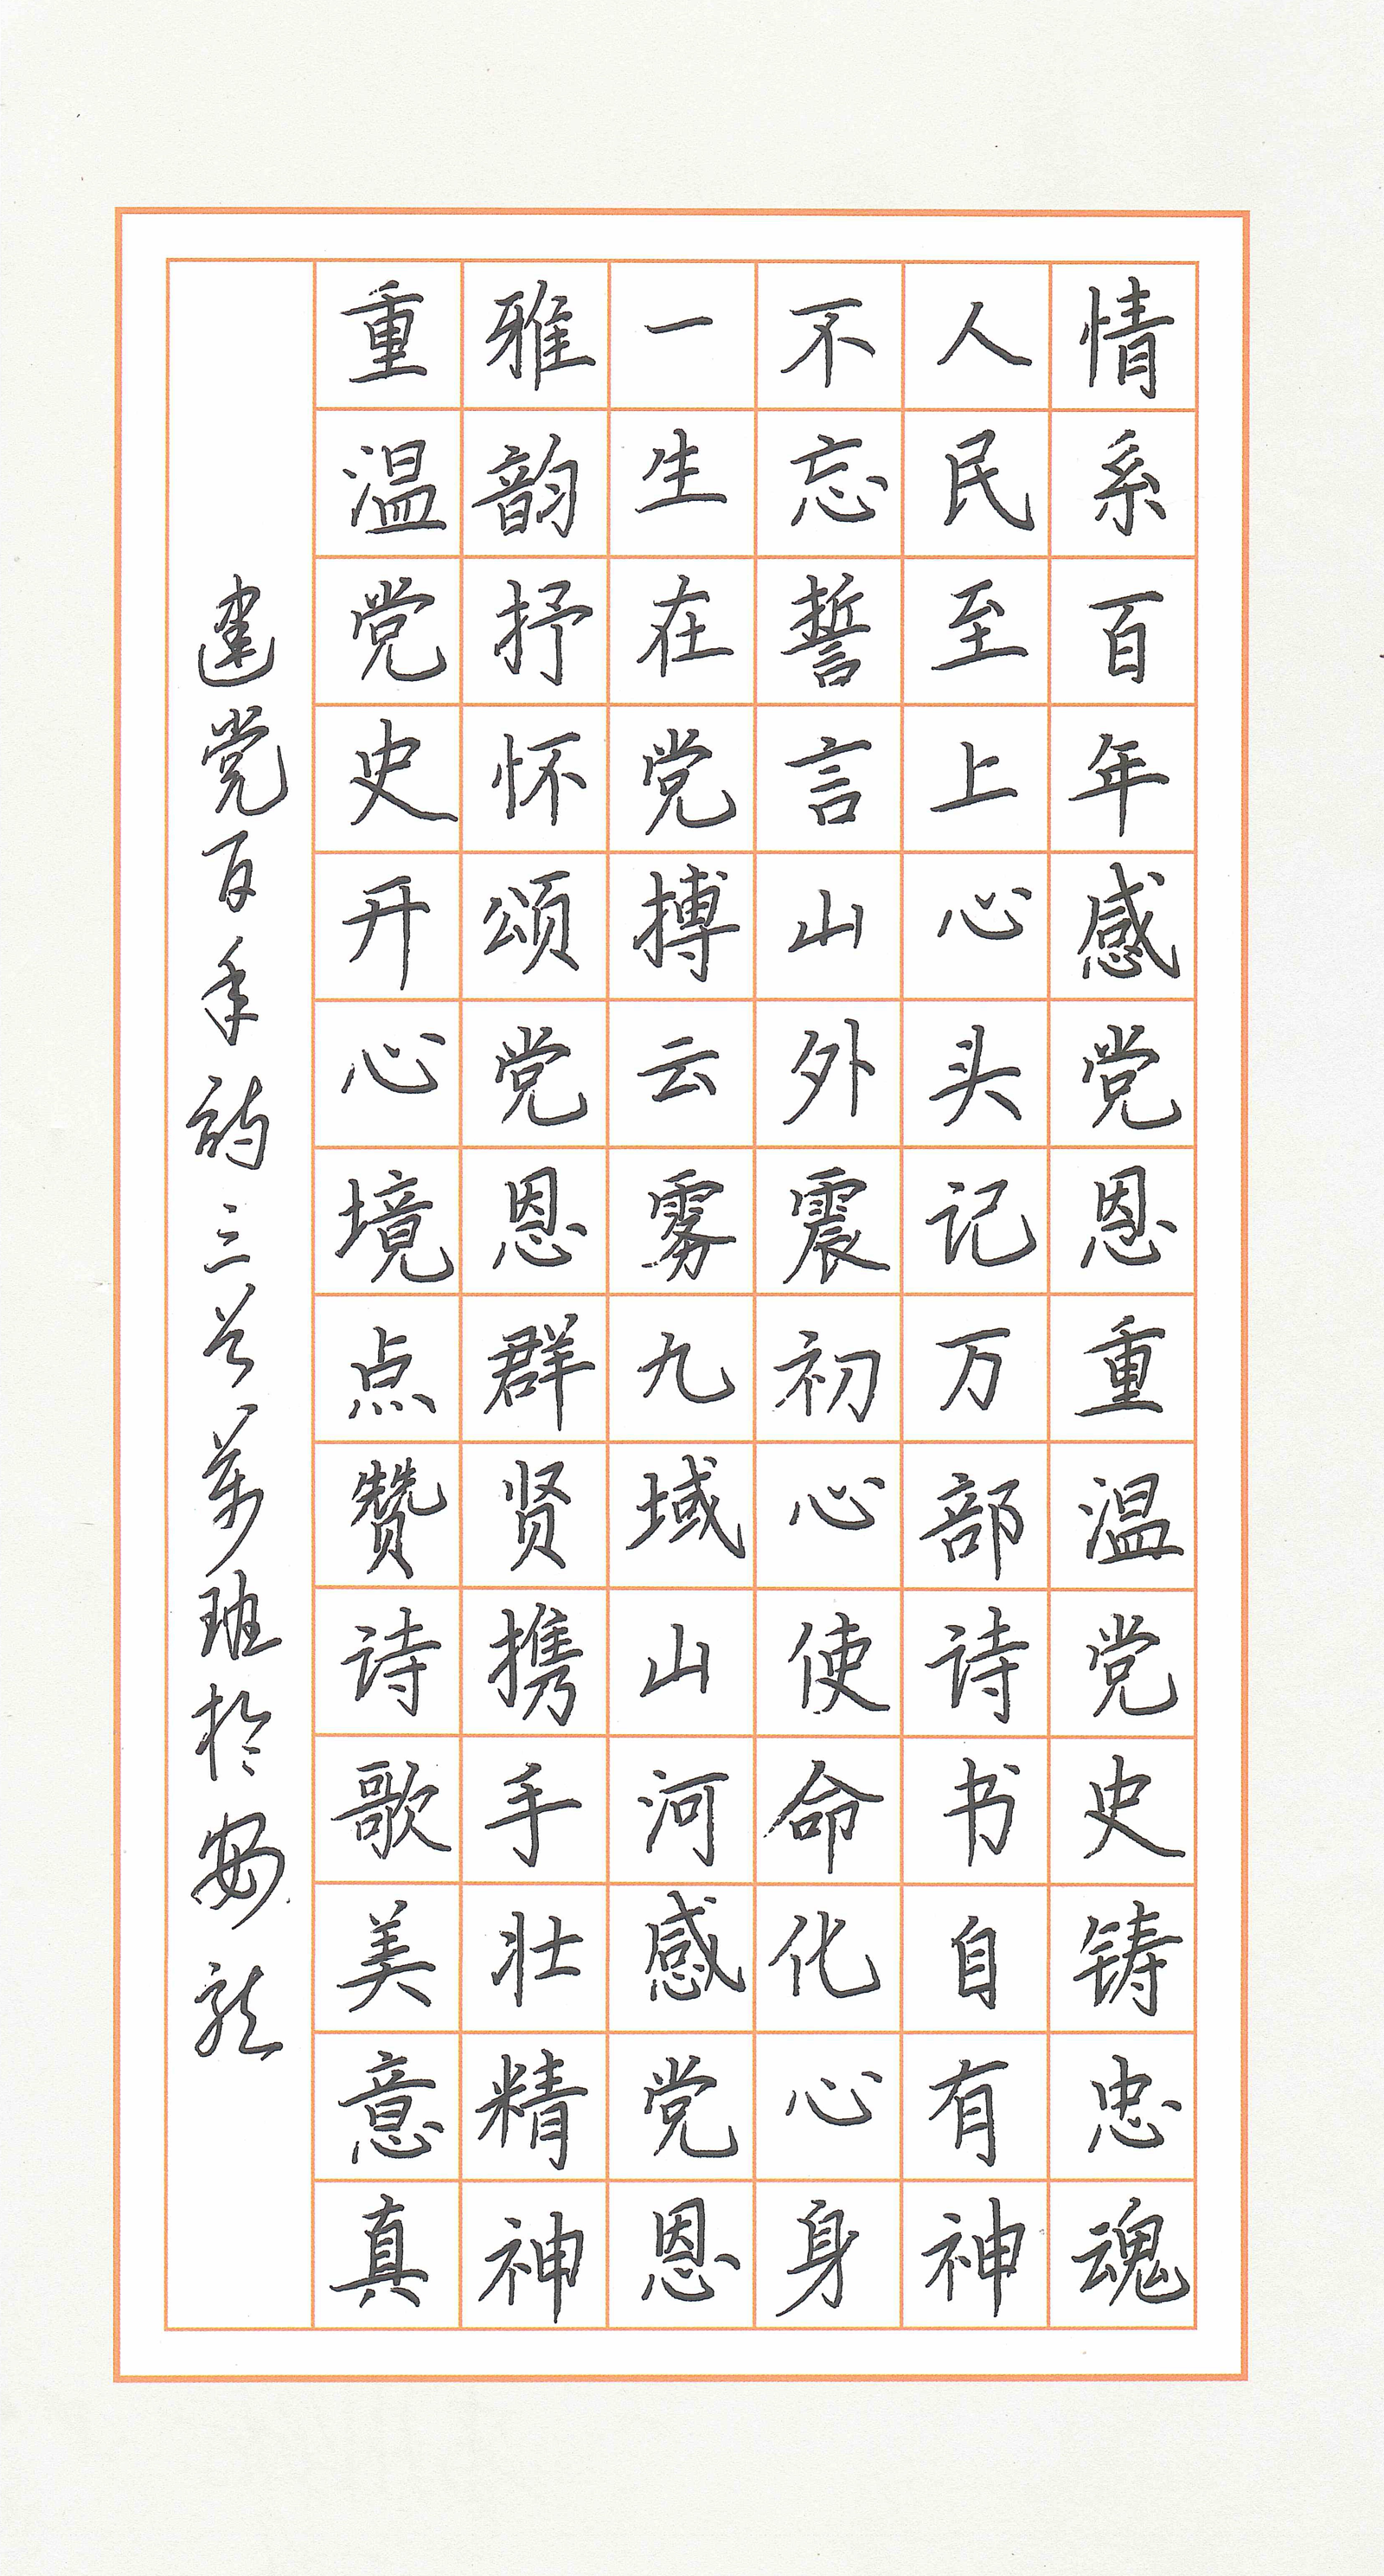 情系百年感党恩重温党史铸忠魂
人民至上心头记万部诗书自有神
不忘誓言山外震初心使命化心身
一生在党搏云雾九域山河感党恩
雅韵抒怀颂党恩群贤携手壮精神
重温党史开心境点赞诗歌美意真
建党百年诗三首 班於安龙